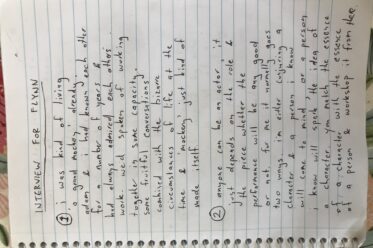 INTERVIEW FOR FLYNN
① i was kind of living
a good mockery already
adam & i had known each other
for a number of years &
had always admired each others
work. we'd spoken of working
together in some capacity.
some fruitful conversations
combined with the bizarre
circumstances of life at the
time & mockery just kind of
made itself.
② anyone can be an actor, it
just depends on the role &
the piece whether the
performance will be any good
or not. for me it normally goes
two ways, i either conjuring a
character & a person i know
will come to mind or a person
i know will spark the idea of
a character. you match the essence
of a character with the essence
of a person & workshop it from there